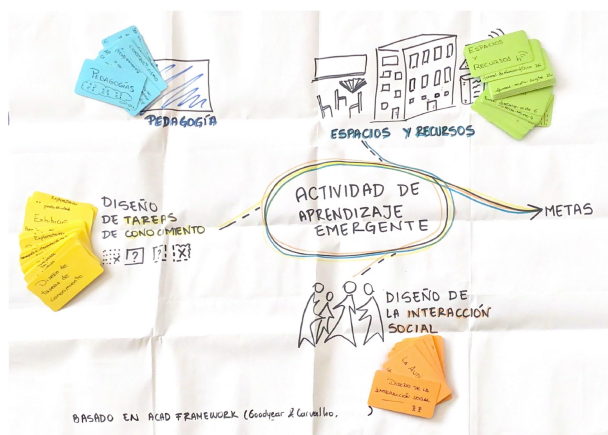 PEDAGOGÍAS
PEDAGOGÍA
ESPACIOS
Y
RECURSOS
ESPACIOS Y RECURSOS
DISEÑO
DE TAREAS
DE CONOCIMIENTO
Exhibir
Diseño de
tareas de
conocimiento
ACTIVIDAD DE
APRENDIZAJE
EMERGENTE
METAS
DISEÑO DE
LA INTERACCIÓN
SOCIAL
DISEÑO DE LA
INTERACCIÓN SOCIAL
BASADO EN ACAD FRAMEWORK (Goodyear & Carvalho, )